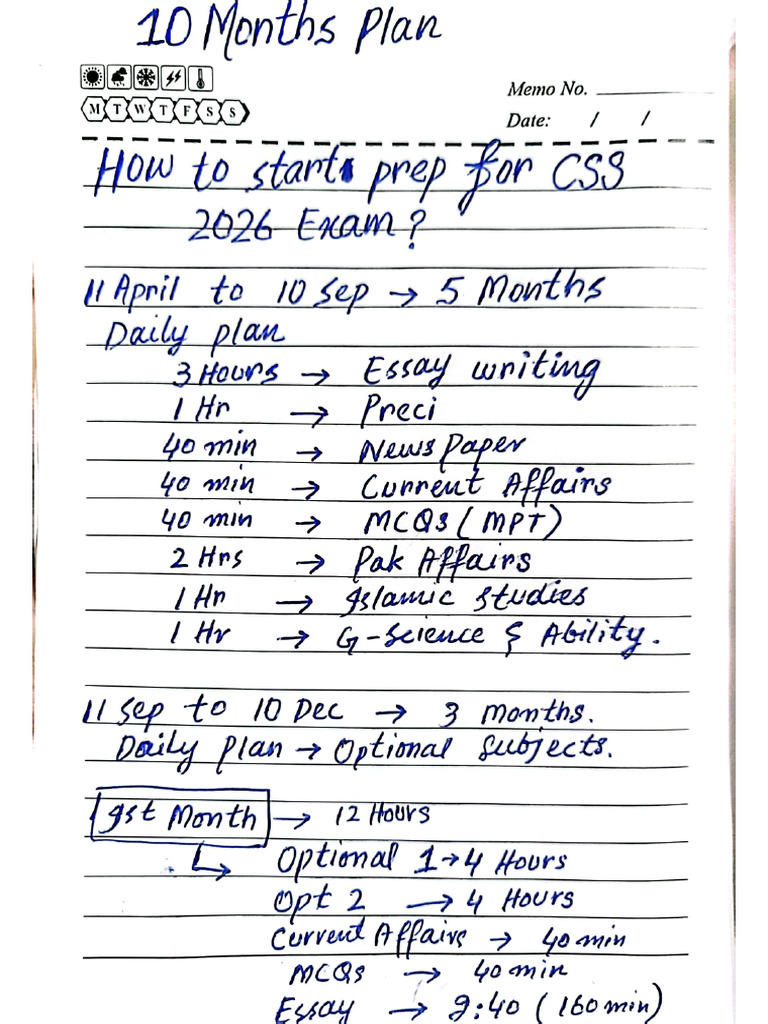 10 Months Plan
Memo No.
M T W T F S S
Date: / /
How to start prep for CSS
2026 Exam?
11 April to 10 Sep → 5 Months
Daily plan
3 Hours → Essay writing
1 Hr → Preci
40 min → News Paper
40 min → Current Affairs
40 min → MCQs (MPT)
2 Hrs → Pak Affairs
1 Hr → Islamic Studies
1 Hr → G-Science & Ability.
11 Sep to 10 Dec → 3 months.
Daily plan → Optional Subjects.
Ist Month → 12 Hours
Optional 1 → 4 Hours
Opt 2 → 4 Hours
Current Affairs → 40 min
MCQs → 40 min
Essay → 2:40 (160 min)